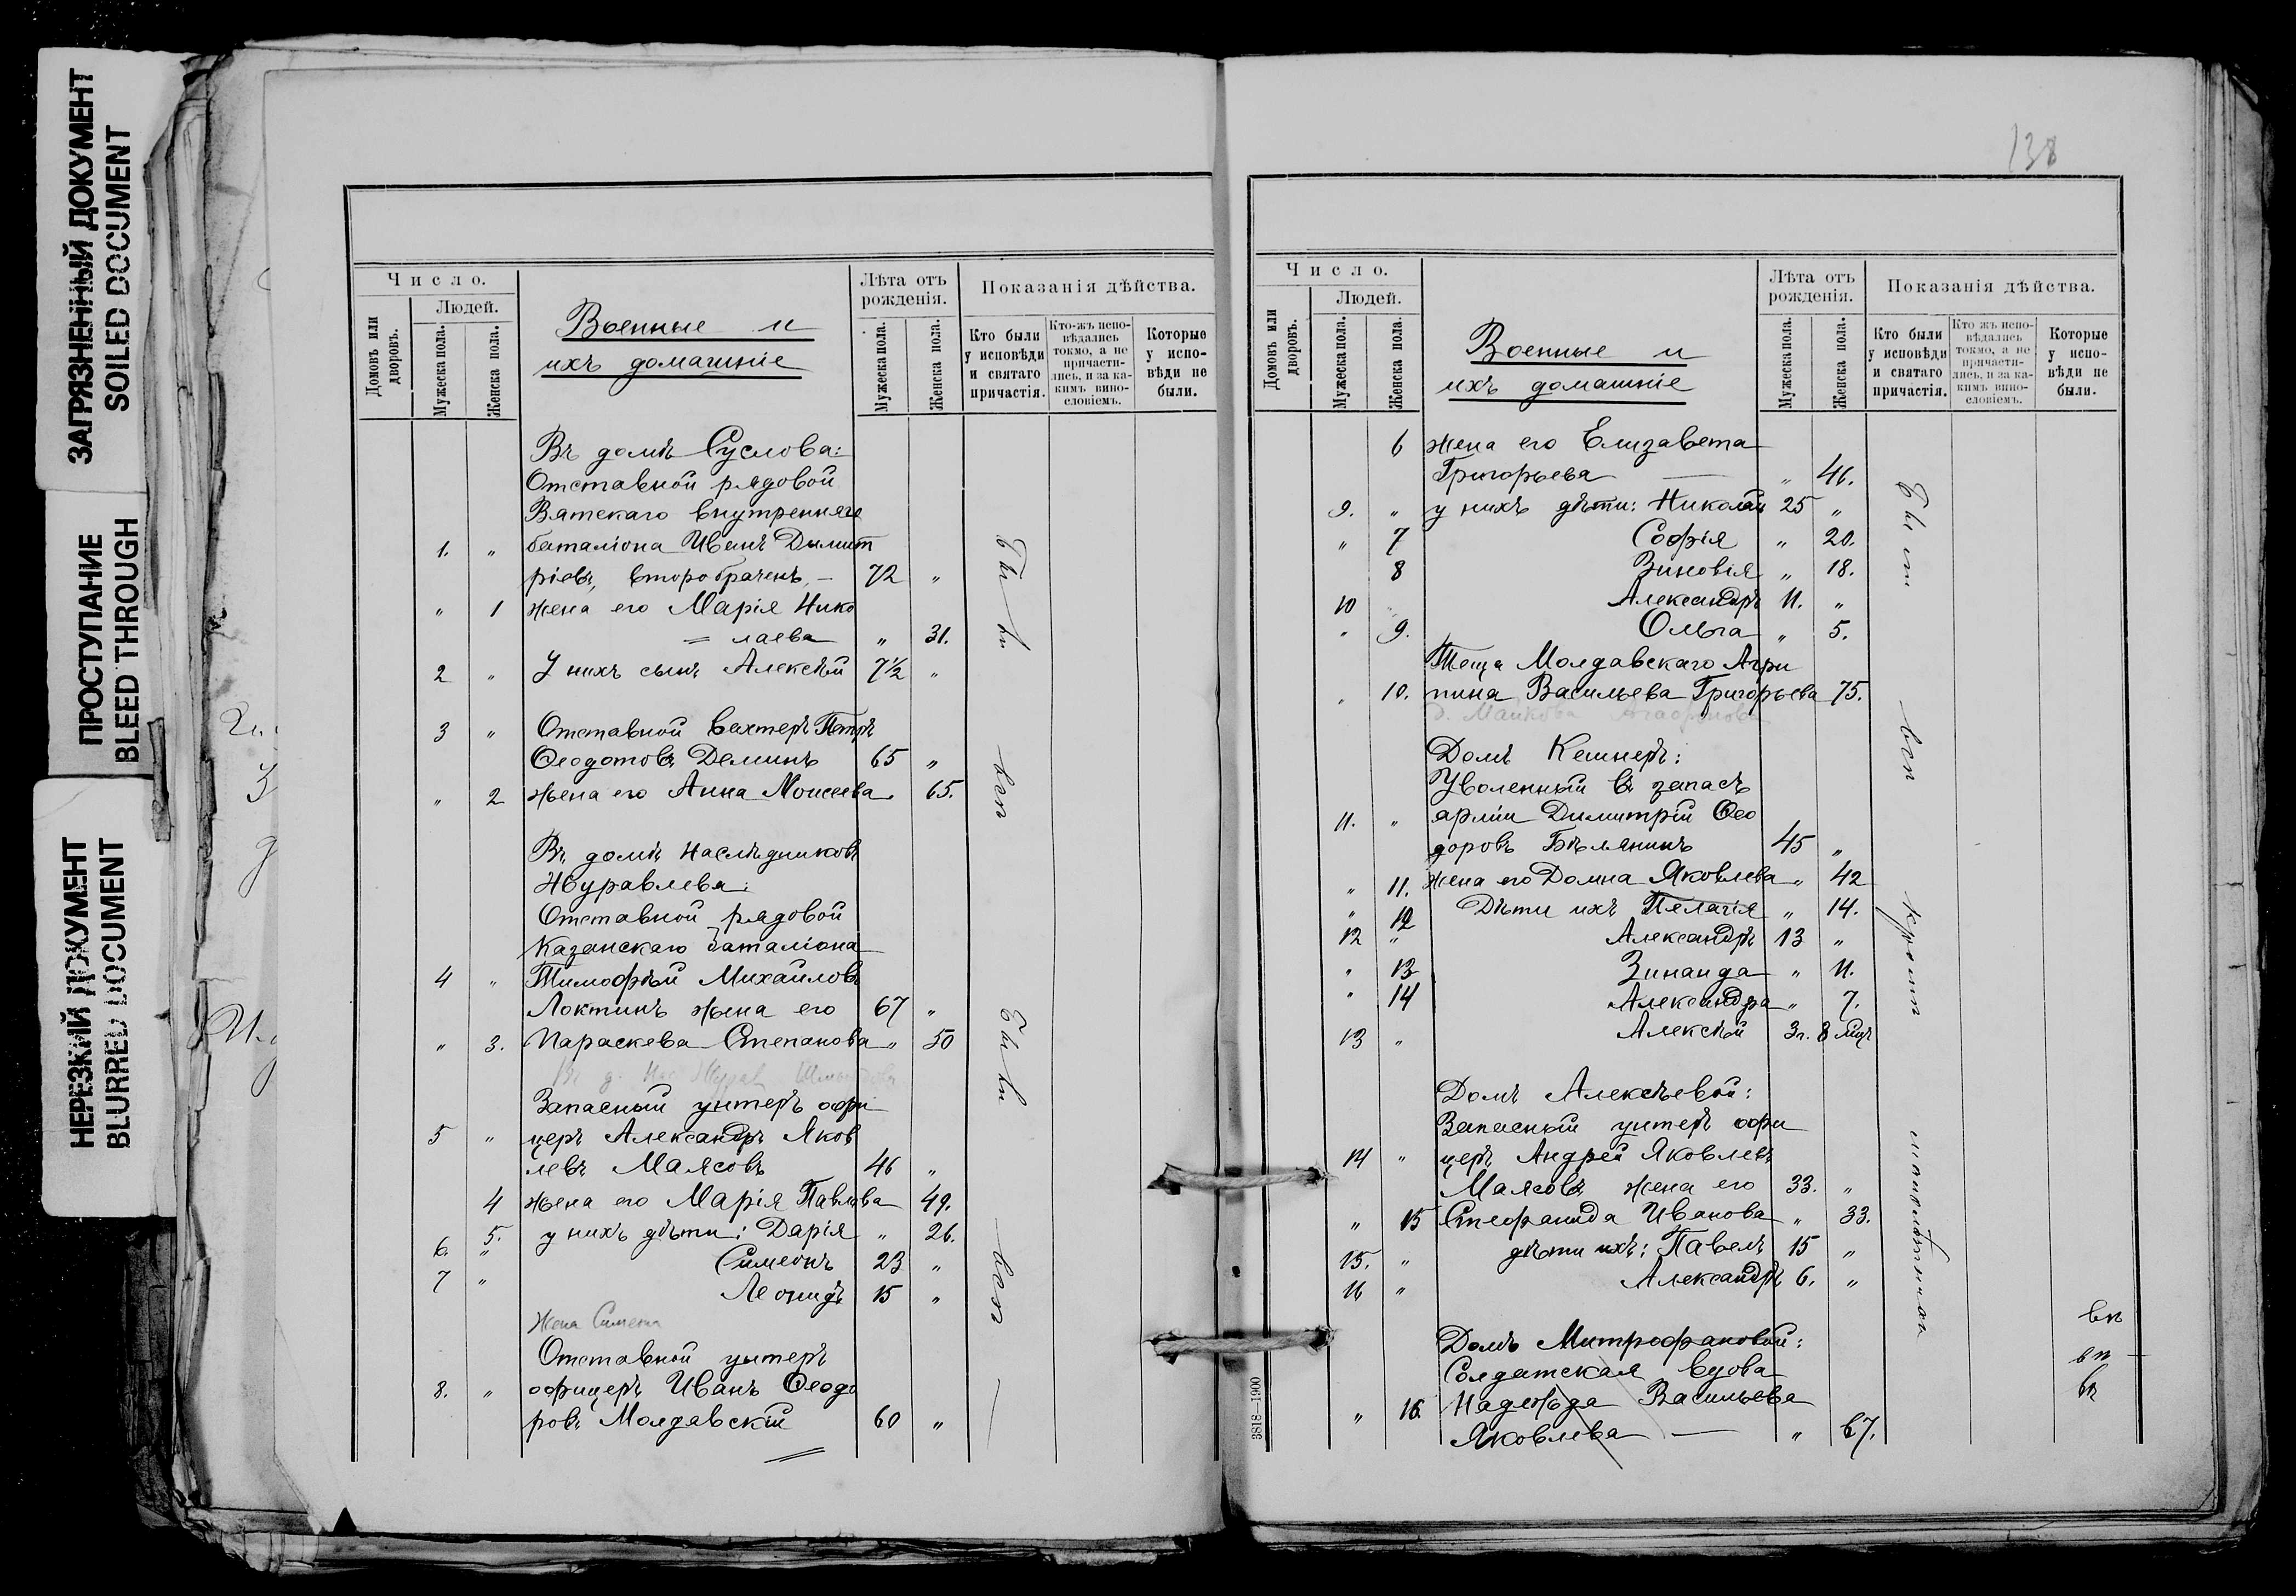 ЗАГРЯЗНЕННЫЙ ДОКУМЕНТ
SOILED DOCUMENT
ПРОСТУПАНИЕ
BLEED THROUGH
НЕРЕЗКИЙ ДОКУМЕНТ
BLURRED DOCUMENT
Число.
Домовъ или дворовъ.
Людей.
Мужеска пола.
Женска пола.
Военные и
ихъ домашніе
Лѣта отъ рожденія.
Мужеска пола.
Женска пола.
Показанія дѣйства.
Кто были у исповѣди и святаго причастія.
Кто-жъ испо-вѣдались токмо, а не причасти-лись, и за ка-кимъ вино-словіемъ.
Которые у испо-вѣди не были.
Въ домѣ Суслова:
Отставной рядовой
Вятскаго внутренняго
1. " баталіона Иванъ Димит
ріевъ, второбраченъ, – 72 "
" 1 жена его Марія Нико
= лаева " 31.
2 " У нихъ сынъ Алексѣй 7½ "
3 " Отставной вахтеръ Петръ
Ѳеодотовъ Деминъ 65 "
" 2 жена его Анна Моисеева 65.
Въ домѣ наслѣдниковъ
Журавлева:
Отставной рядовой
Казанскаго баталіона
4 " Тимофѣй Михаиловъ
Локтинъ жена его 67 "
" 3. Параскева Степанова " 50
Запасный унтеръ офи
5 " церъ Александръ Яков
левъ Маясовъ 46 "
4 жена его Марія Павлова 49.
5. у нихъ дѣти: Дарія " 26.
6. " Симеонъ 23 "
7 " Леонидъ 15 "
Жена Симеона
Отставной унтеръ
8. " офицеръ Иванъ Ѳеодо
ровъ Молдавскій 60 "
Были
всѣ
Были
всѣ
138
Число.
Домовъ или дворовъ.
Людей.
Мужеска пола.
Женска пола.
Военные и
ихъ домашніе
Лѣта отъ рожденія.
Мужеска пола.
Женска пола.
Показанія дѣйства.
Кто были у исповѣди и святаго причастія.
Кто жъ испо-вѣдались токмо, а не причасти-лись, и за ка-кимъ вино-словіемъ.
Которые у испо-вѣди не были.
6 жена его Елизавета
Григорьева — " 46.
9. " у нихъ дѣти: Николай 25 "
" 7 Софія " 20.
8 Зиновія " 18.
10 " Александръ 11. "
" 9. Ольга " 5.
Теща Молдавскаго Агри
" 10. пина Васильева Григорьева 75.
Домъ Кешнеръ:
Уволенный въ запасъ
11. " арміи Димитрій Ѳео
доровъ Бѣлянинъ 45 "
" 11. жена его Домна Яковлева " 42
" 12 Дѣти ихъ Пелагія " 14.
12 " Александръ 13 "
" 13 Зинаида " 11.
" 14 Александра " 7.
13 " Алексѣй 3 г. 8 мцъ
Домъ Алексѣевой:
Запасный унтеръ офи
14 " церъ Андрей Яковлевъ
Маясовъ жена его 33. "
" 15 Стефанида Иванова " 33.
15. " дѣти ихъ: Павелъ 15 "
16 " Александръ 6. "
Домъ Митрофановой:
Солдатская вдова
" 16. Надежда Васильева
Яковлева — " 67.
Были
всѣ
кромѣ
вп
вп —
вп
3818—1900